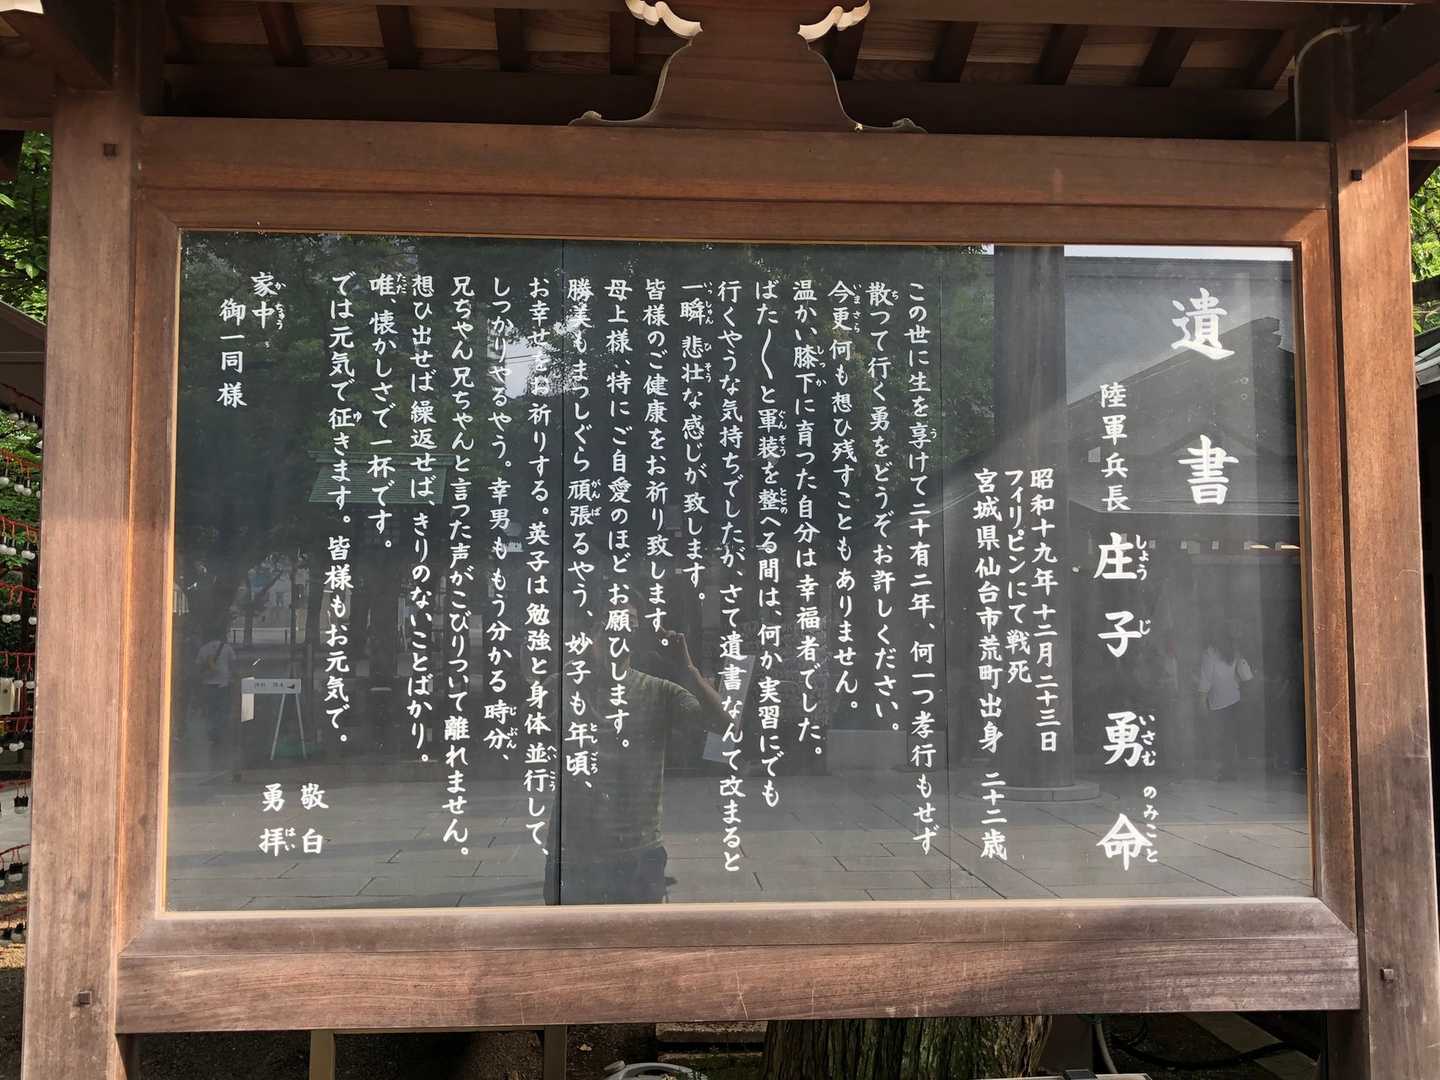 遺書
陸軍兵長 庄子勇命
しょうじ いさむのみこと
昭和十九年十二月二十三日
フィリピンにて戦死
宮城県仙台市荒町出身 二十二歳
この世に生を享けて二十有二年、何一つ孝行もせず
散つて行く勇をどうぞお許しください。
今更何も想ひ残すこともありません。
温かい膝下に育つた自分は幸福者でした。
ばた〱と軍装を整へる間は、何か実習にでも
行くやうな気持ちでしたが、さて遺書なんて改まると
一瞬悲壮な感じが致します。
皆様のご健康をお祈り致します。
母上様、特にご自愛のほどお願ひします。
勝美もまつしぐら頑張るやう、妙子も年頃、
お幸せをお祈りする。英子は勉強と身体並行して、
しつかりやるやう。幸男ももう分かる時分、
兄ちゃん兄ちゃんと言った声がこびりついて離れません。
想ひ出せば繰返せば、きりのないことばかり。
唯、懐かしさで一杯です。
では元気で征きます。皆様もお元気で。
敬白
勇拝
家中
御一同様